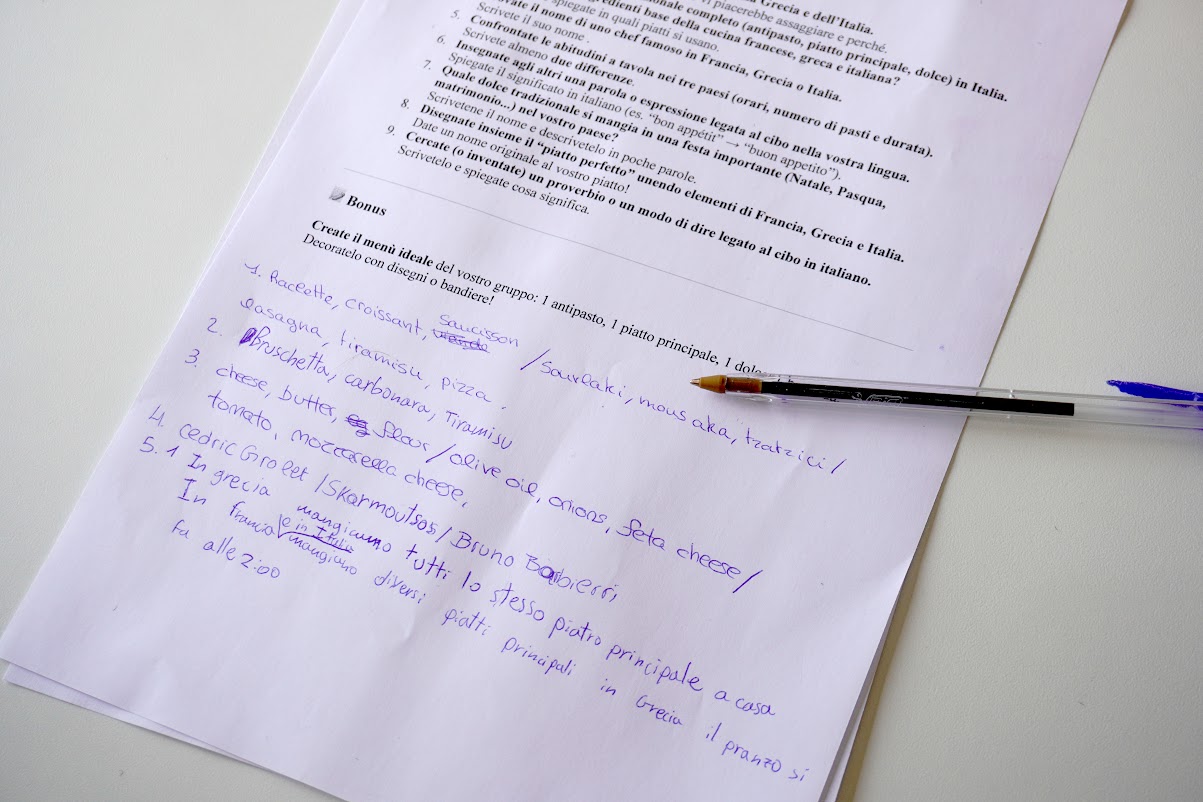 Grecia e dell'Italia.
vi piacerebbe assaggiare e perché.
completo (antipasto, piatto principale, dolce) in Italia.
ingredienti base della cucina francese, greca e italiana?
spiegate in quali piatti si usano.
5. Trovate il nome di uno chef famoso in Francia, Grecia o Italia.
Scrivete il suo nome.
6. Confrontate le abitudini a tavola nei tre paesi (orari, numero di pasti e durata).
Scrivete almeno due differenze.
7. Insegnate agli altri una parola o espressione legata al cibo nella vostra lingua.
Spiegate il significato in italiano (es. “bon appétit” → “buon appetito”).
8. Quale dolce tradizionale si mangia in una festa importante (Natale, Pasqua,
matrimonio...) nel vostro paese?
Scrivetene il nome e descrivetelo in poche parole.
9. Disegnate insieme il “piatto perfetto” unendo elementi di Francia, Grecia e Italia.
Date un nome originale al vostro piatto!
Cercate (o inventate) un proverbio o un modo di dire legato al cibo in italiano.
Scrivetelo e spiegate cosa significa.
Bonus
Create il menù ideale del vostro gruppo: 1 antipasto, 1 piatto principale, 1 dolce
Decoratelo con disegni o bandiere!
1. Raclette, croissant, saucisson / Souvlaki, mousaka, tzatzici /
lasagna, tiramisu, pizza.
2. Bruschetta, carbonara, Tiramisu
3. cheese, butter, flour / olive oil, onions, feta cheese /
tomato, mozzarella cheese.
4. Cedric Grolet / Skarmoutsos / Bruno Barbierri
5. 1 In grecia mangiamo tutti lo stesso piatto principale a casa
In francia e in Italia mangiano diversi piatti principali in Grecia il pranzo si
fa alle 2:00